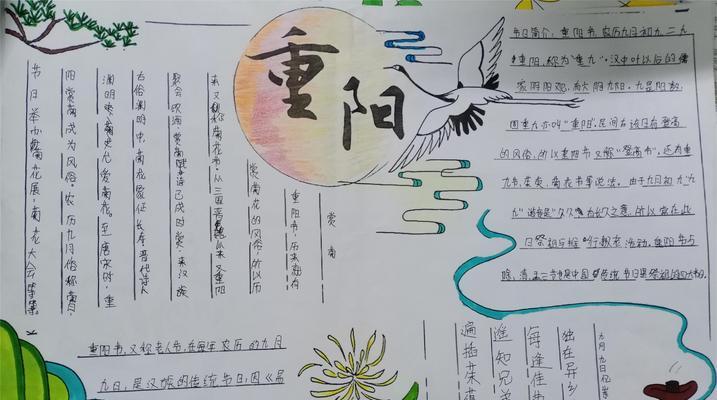 重阳
节日简介，重阳节，农历九月初九，二九
重阳，称为"重九"。汉中叶以后的儒
家阴阳观，有六阴九阳，九是阳数，
固重九亦叫"重阳"。民间在该日有登高
的风俗，所以重阳节又称"登高节"。还有重
九节，茱萸，菊花节等说法。由于九月初九"九
九"谐音是"久久"，有长久之意，所以常在此
日祭祖与推行敬老活动，重阳节与
除，清，盂三节也是中国传统节日里祭祖的四大节日。
赏菊
重阳节，历来就有
赏菊花的风俗，所以历
来又称菊花节。从三国晋以来，重阳
聚会饮酒，赏菊赋诗已成时赏，来汉族
古俗阑中，菊花象征长寿。晋代诗人
渊明冬南史尤爱菊花。至唐宋时，重
阳赏菊成为风俗。农历九月，俗称菊月，
节日举办菊花展，菊花大会等等
重阳节，又称老人节，在每年农历的九月
九日，是汉族的传统节日，因《易
九月九日忆山
独在异乡
每逢佳节
遥知兄弟
遍插茱萸